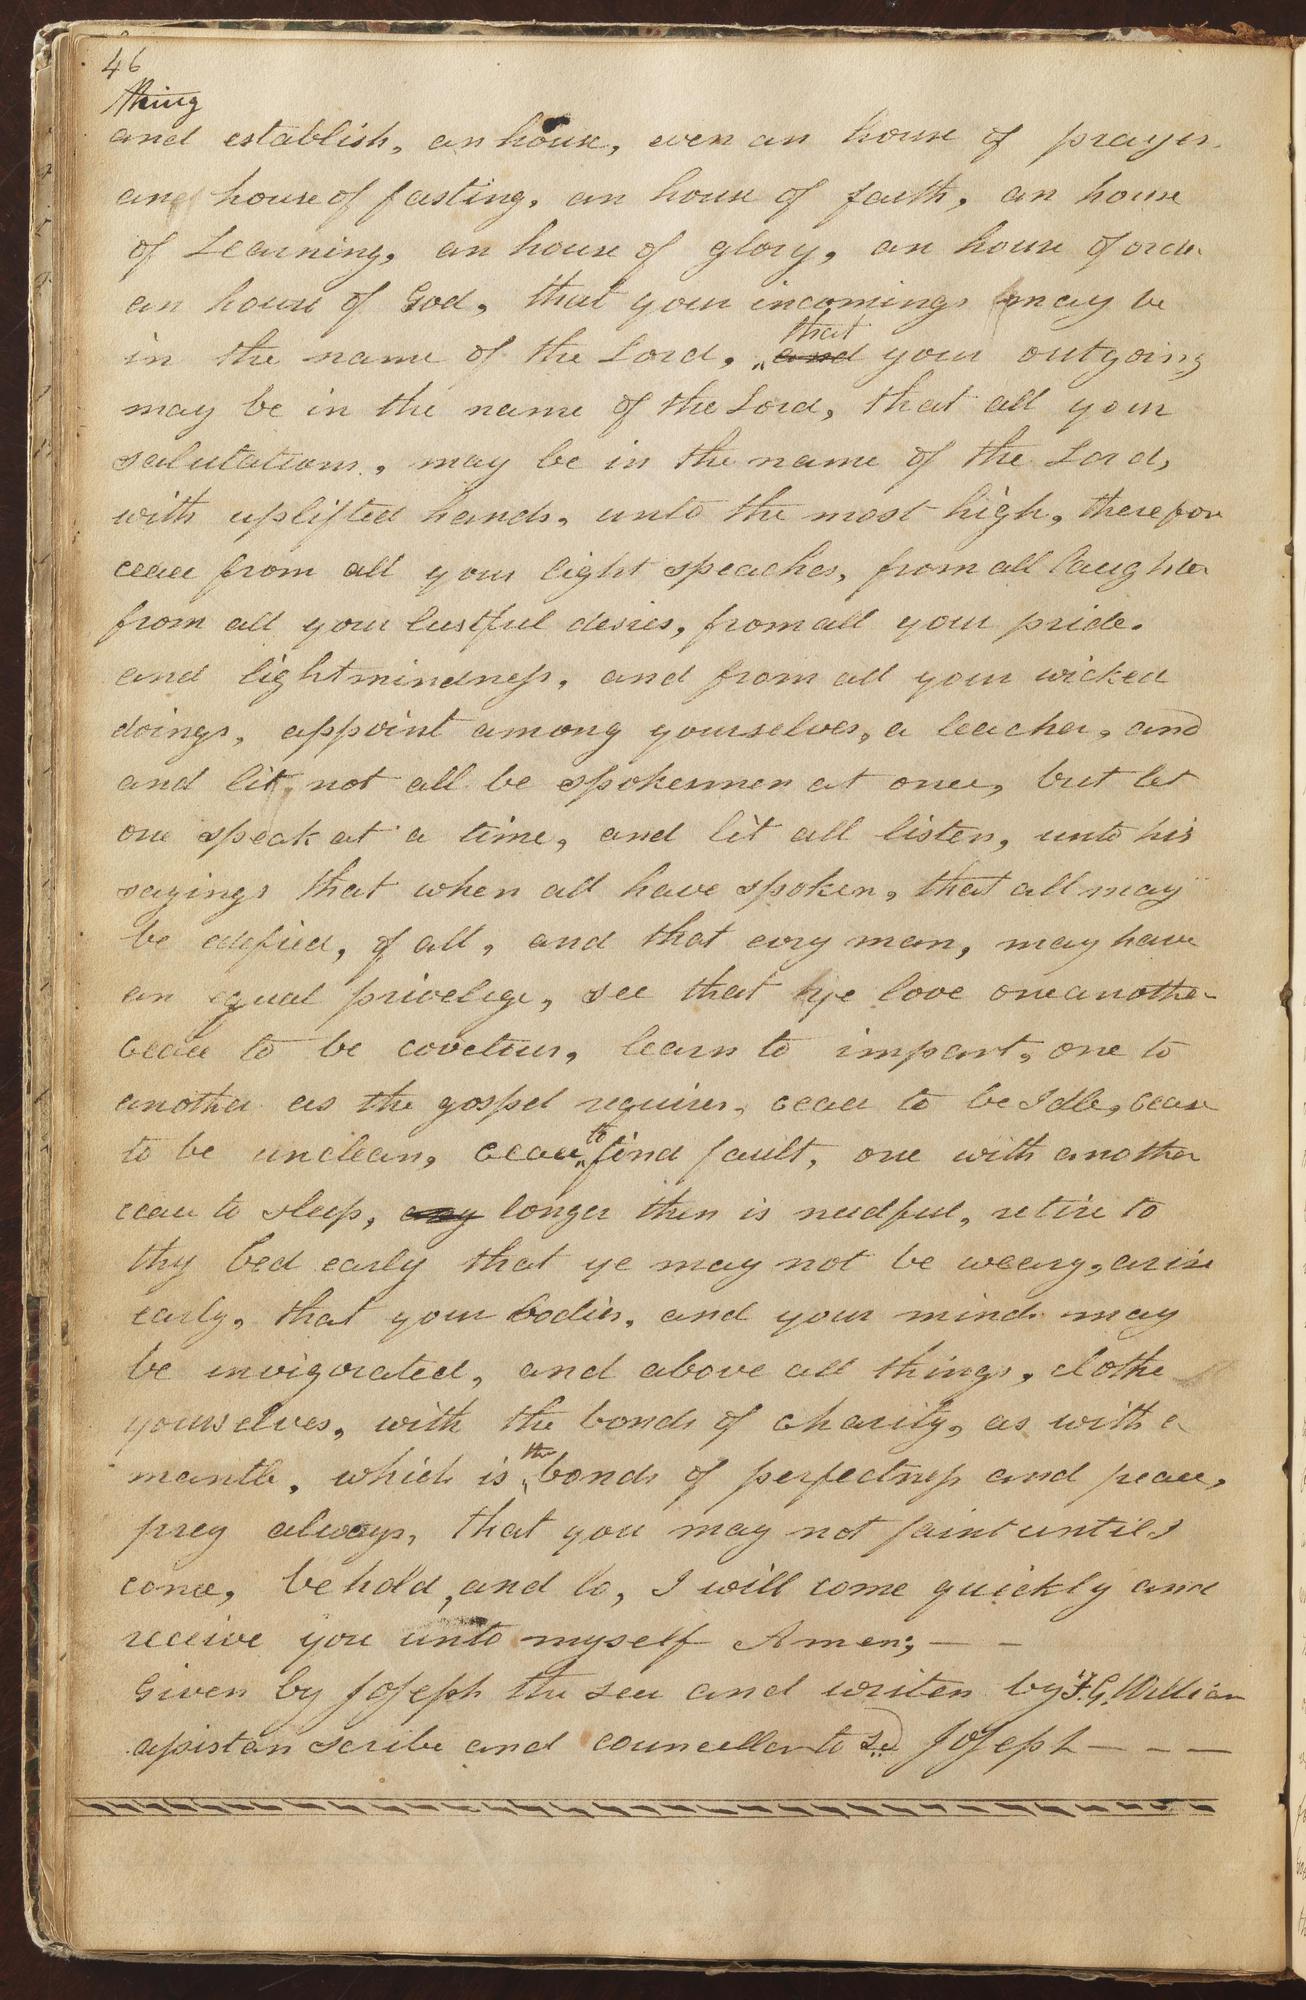 46
thing
and establish, an house, even an house of prayer
an house of fasting, an house of faith, an house
of Learning, an house of glory, an house of order
an house of God, that your incomings may be
in the name of the Lord, that and your outgoing
may be in the name of the Lord, that all your
salutations, may be in the name of the Lord,
with uplifted hands, unto the most high, therefore
cease from all your light speaches, from all laughter
from all your lustful desires, from all your pride.
and lightmindness, and from all your wicked
doings, appoint among yourselves, a teacher, and
and let not all be spokesmen at once, but let
one speak at a time, and let all listen, unto his
sayings that when all have spoken, that all may
be edified, of all, and that evry man, may have
an equal privelege, see that ye love one another
cease to be coveteus, learn to impart, one to
another as the gospel requires, cease to be Idle, cease
to be unclean, cease to find fault, one with another
cease to sleep, any longer then is needful, retire to
thy bed early that ye may not be weary, arise
early, that your bodies, and your minds may
be invigorated, and above all things, clothe
yourselves, with the bonds of charity, as with a
mantle, which is the bonds of perfectness and peace,
prey always, that you may not faint until I
come, behold, and lo, I will come quickly and
receive you unto myself Amen; — —
Given by Joseph the seer and writen by F. G. William
assistan scribe and councellor to sd Joseph — — —